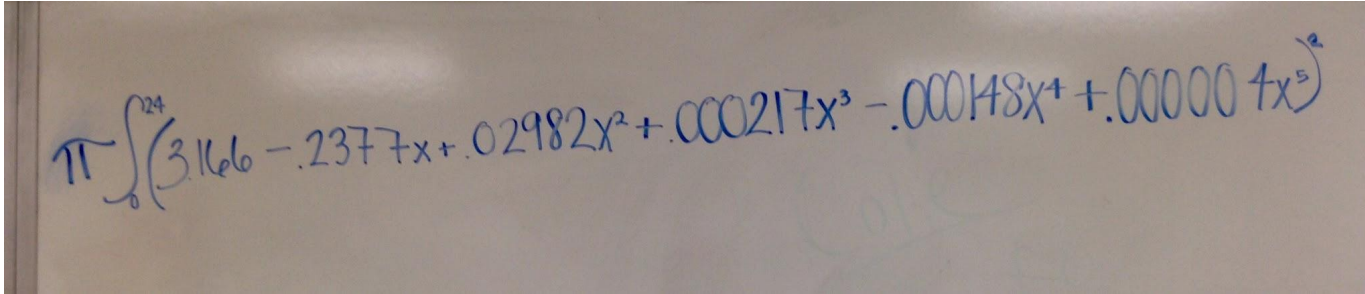 π∫₀²⁴(3.166 - .2377x + .02982x² + .000217x³ - .000148x⁴ + .000004x⁵)²